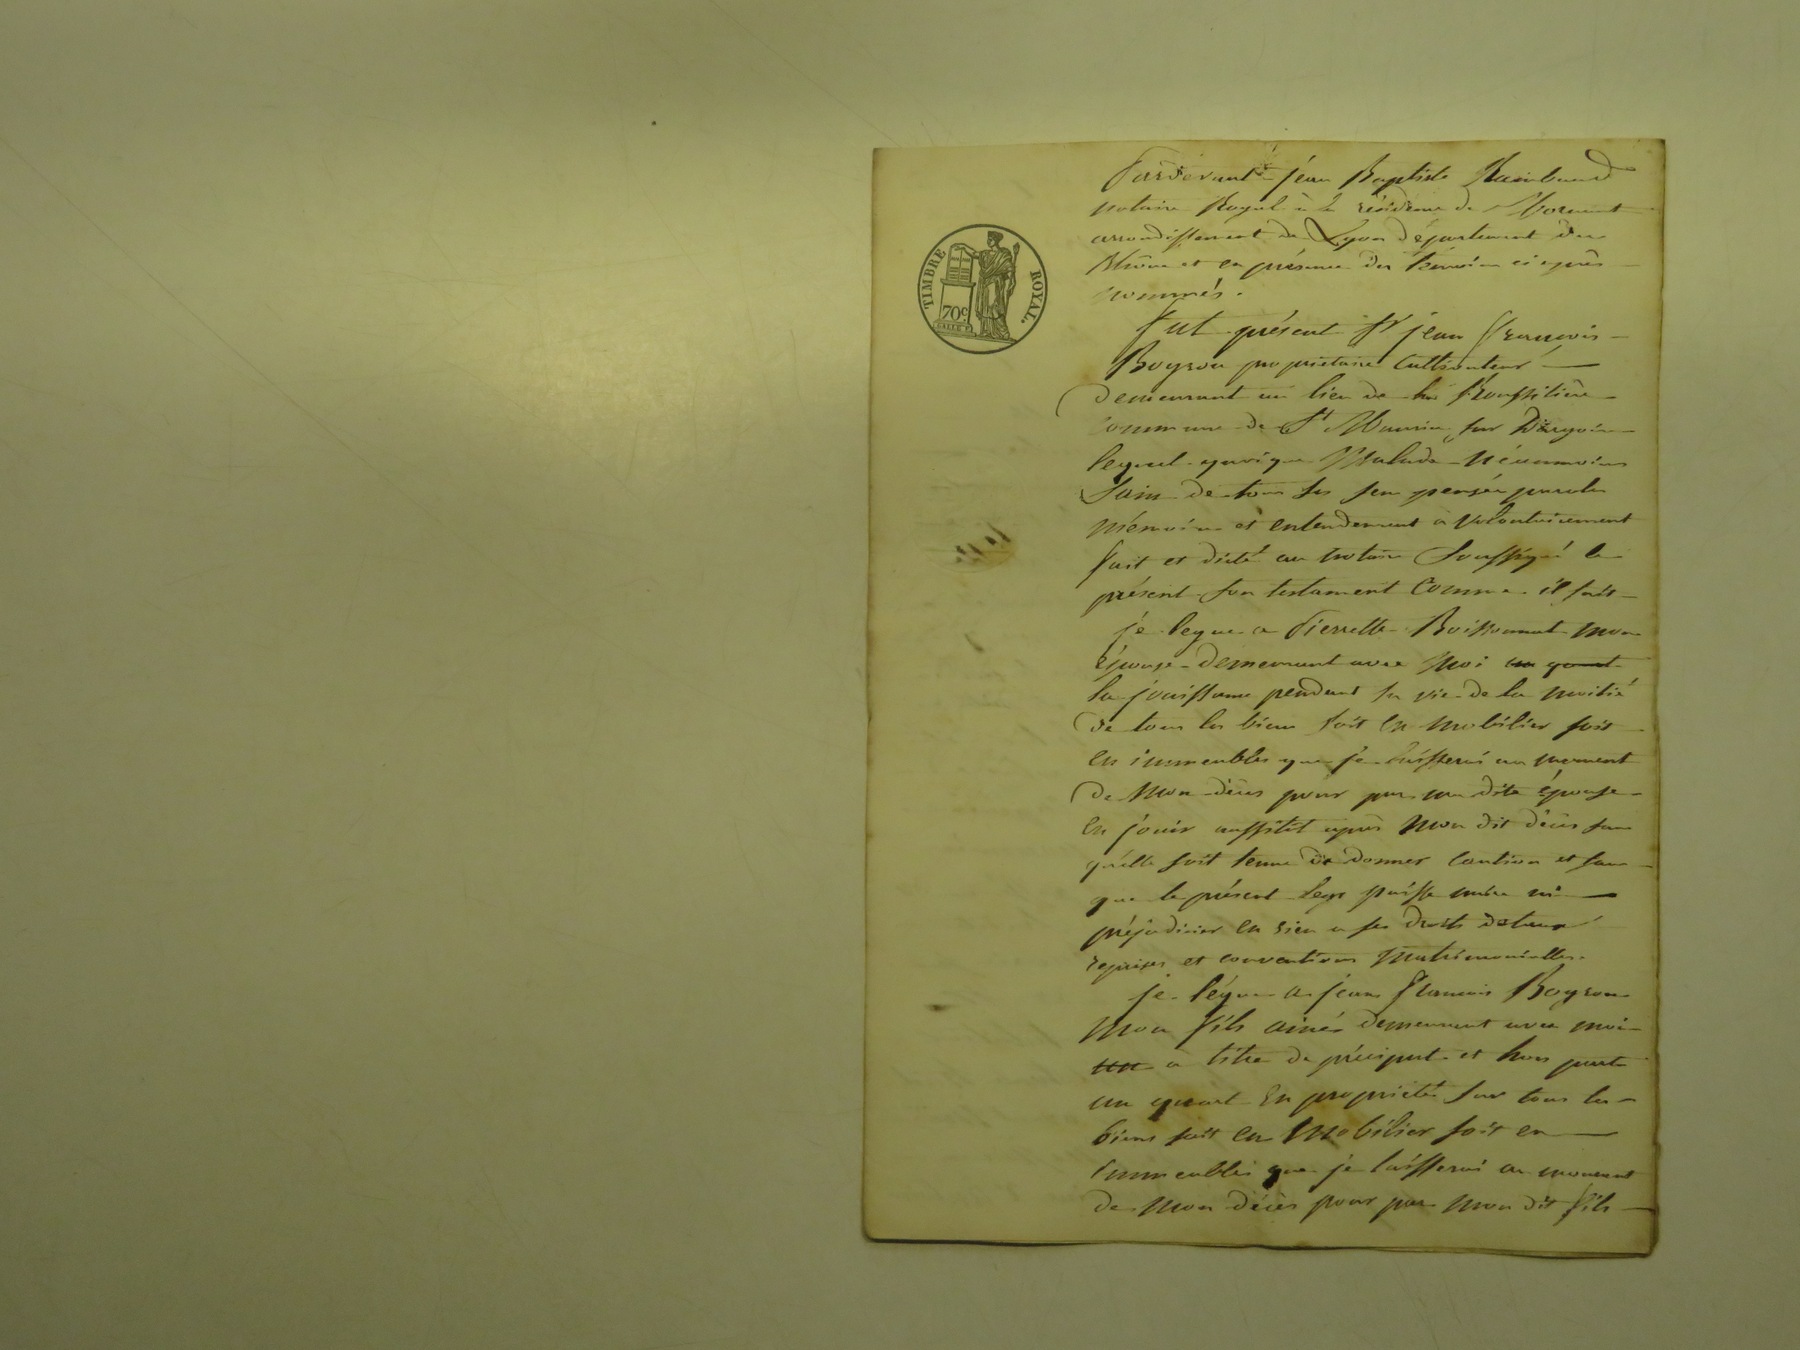 TIMBRE ROYAL.
70c.
Pardevant Me jean Baptiste Raimbaud
notaire Royal à la résidence de Mornant
arrondissement de Lyon département du
Rhône et en présence des témoins ci après
nommés.
fut présent Sr jean François
Boyron propriétaire Cultivateur
demeurant au lieu de la
Commune de St Maurice sur Dargoire
lequel quoique Malade Néanmoins
Sain de tous ses sens pensée parole
mémoire et entendement a volontairement
fait et dicté au notaire Soussigné le
présent son testament Comme il suit
je legue a Pierrette Boissonnat mon
épouse demeurant avec moi un quart
la jouissance pendant sa vie de la moitié
de tous les biens soit en mobilier soit
en immeubles que je laisserai au moment
de Mon décès pour par ma dite épouse
en jouir aussitôt après Mon dit décès sans
qu'elle soit tenue de donner Caution et sans
que le présent legs puisse nuire ni
préjudicier en rien a ses droits
reprises et conventions Matrimonielles.
je légue a jean François Boyron
Mon fils ainé demeurant avec moi
un a titre de préciput et hors part
un quart En propriété sur tous les
biens soit en Mobilier soit en
immeubles que je laisserai au moment
de Mon décès pour par Mon dit fils